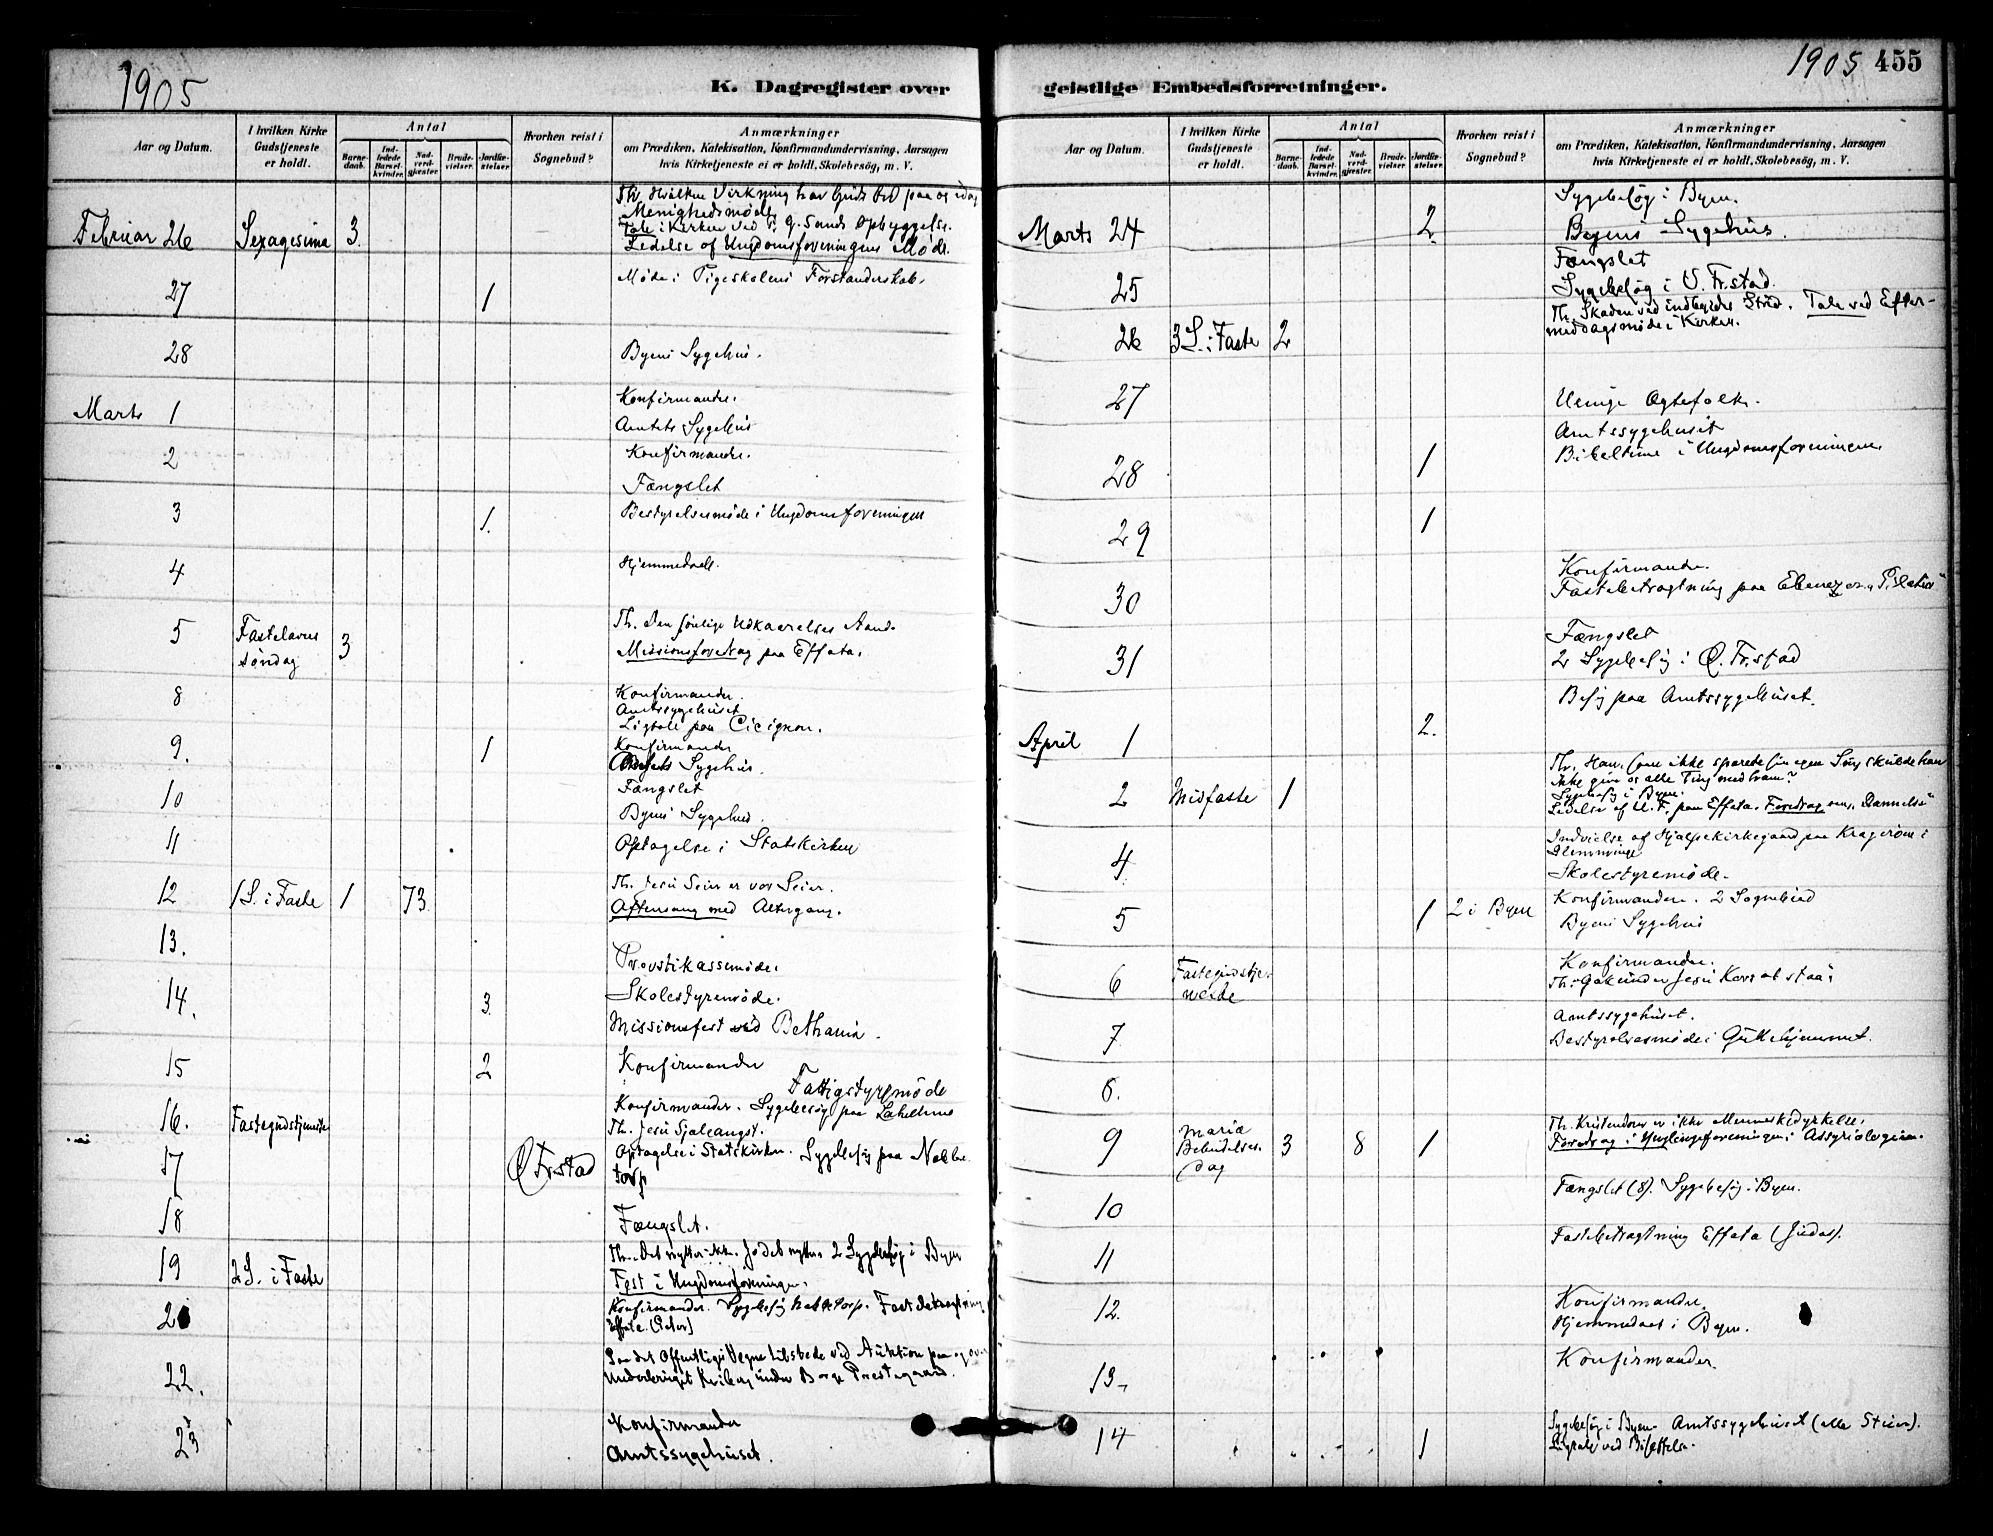 1905
K. Dagregister over
Aar og Datum.
I hvilken Kirke Gudstjeneste er holdt.
Antal
Barne-daab.
Ind-ledede Barsel-kvinder.
Nad-verd-gjæster.
Brude-vielser.
Jordfæ-stelser.
Hvorhen reist i Sognebud?
Anmærkninger
om Prædiken, Katekisation, Konfirmandundervisning, Aarsagen
hvis Kirketjeneste ei er holdt, Skolebesøg, m. V.
Th. Hvilken Virkning har Guds Ord paa os idag
Menighedsmøde
Tale i Kirken ved
Februar 26 Sexagesima 3 Ledelse af Ungdomsforeningens Møde.
27 1 Møde i Pigeskolens Forstanderskab.
28 Byens Sygehus.
Marts 1 Konfirmander.
Amtets Sygehus
2 Konfirmander.
Fængslet
3 1. Bestyrelsesmøde i Ungdomsforeningen
4 Hjemmedaab.
5 Fastelavns søndag 3 Th. Den Aand.
Missionsforedrag paa Effata.
8 Konfirmander.
Amtssygehuset
Ligtale paa Cicignon.
9. 1 Konfirmander
Sygehus.
10 Fængslet
Byens Sygehus.
11 Optagelse i Statskirken
12 1 S. i Faste 1 73 Th. Jesu Seier er vor Seier.
Aftensang med Altergang.
13. Provstikassemøde.
14. 3. Skolestyremøde.
Missionsfest ved Bethania.
15 2 Konfirmander
Fattigstyremøde
16. Fastegudstjeneste Konfirmander. Sygebesøg paa
Th. Jesu Sjæleangst.
17 Ø Fr.stad Optagelse i Statskirken. Sygebesøg paa Nabbe
torp
18 Fængslet.
19 2 S. i Faste Th. Det nytter ikke. Jo det nytter 2 Sygebesøg i Byen
Fest i Ungdomsforeningen.
2 Konfirmander. Sygebesøg Nabbetorp. Fastebetragtning
Effata.
22. Paa det Offentliges Vegne tilstede ved Auktion paa
under Borge Prestegaard.
23 Konfirmander
Amtssygehuset.
1905 455
geistlige Embedsforretninger.
Aar og Datum.
I hvilken Kirke Gudstjeneste er holdt.
Antal
Barne-daab.
Ind-ledede Barsel-kvinder.
Nad-verd-gjæster.
Brude-vielser.
Jordfæ-stelser.
Hvorhen reist i Sognebud?
Anmærkninger
om Prædiken, Katekisation, Konfirmandundervisning, Aarsagen
hvis Kirketjeneste ei er holdt, Skolebesøg, m. V.
Sygebesøg i Byen.
Marts 24 2. Byens Sygehus.
Fængslet
25 Sygebesøg i Ø. Fr.stad.
Th. Skaden ved indbyrdes Strid. Tale ved Efter-
26 3 S. i Faste 2 middagsmøde i Kirken.
27 Uenige Ægtefolk.
Amtssygehuset
28 1 Bibeltime i Ungdomsforeningen
29 1
30 Konfirmander.
Fastebetragtning paa Ebenezer "Pilatus"
31 Fængslet
2 Sygebesøg i Ø. Fr.stad
Besøg paa Amtssygehuset.
April 1 2.
Th. Han, som ikke sparede sin egen Søn, skulde han
ikke give os alle Ting med ham?
2 Midfaste 1 Sygebesøg i Byen.
Ledelse af U. F. paa Effata. Foredrag om "Dannelse"
4 Indvielse af Hjælpekirkegaard paa Kragerøen i
Glemminge
Skolestyremøde.
5 1 2 i Byen Konfirmander. 2 Sognebud
Byens Sygehus
6 Fastegudstje-neste Konfirmander.
Th. "Gak under Jesu Kors at staa"
7 Amtssygehuset.
Bestyrelsesmøde i Gutehjemmet.
8.
9 Maria Bebudelses-dag 3 8 1 Th. Kristendom er ikke Menneskedyrkelse.
Foredrag i Ynglingeforeningen: Assyriologien.
10 Fængslet (8). Sygebesøg i Byen.
11 Fastebetragtning Effata (Judas).
12. Konfirmander.
Hjemmedaab i Byen.
13. Konfirmander.
14 1 Sygebesøg i Byen. Amtssygehuset (alle Stuer).
Ligtale ved Bisættelse.